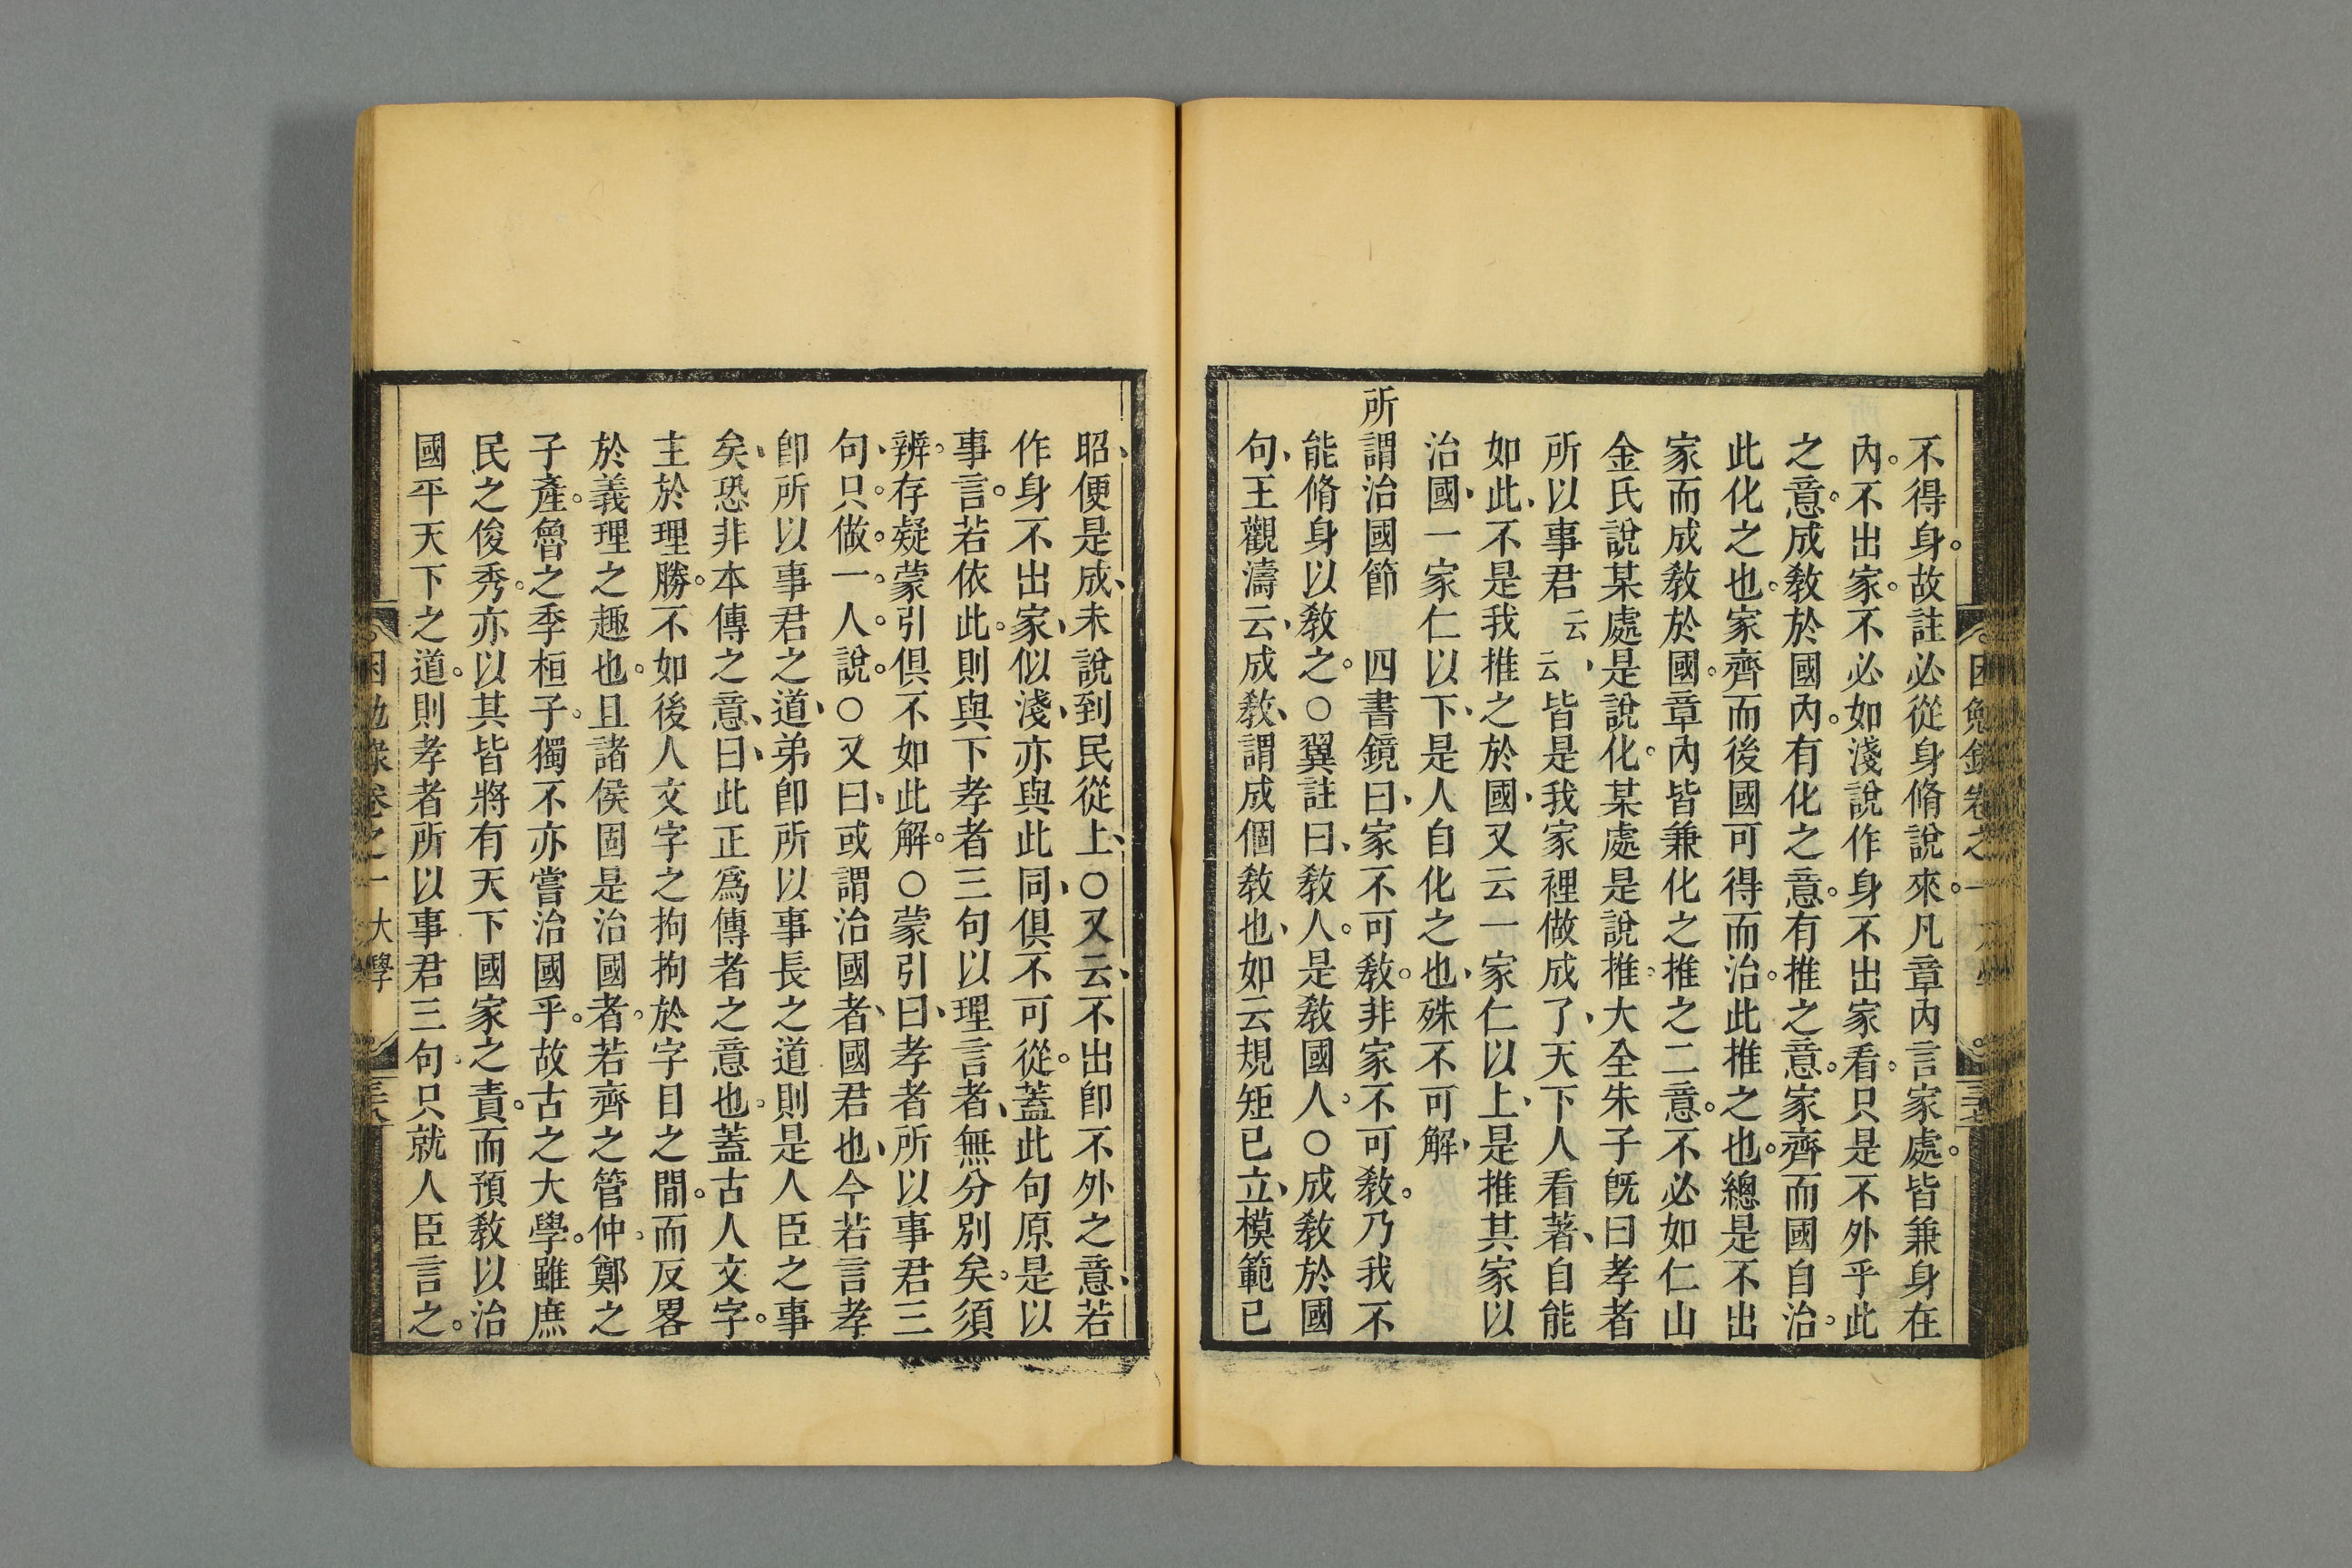 不得身。故註必從身脩說來。凡章內言家處。皆兼身在
內。不出家。不必如淺說作身不出家看。只是不外乎此
之意。成教於國內。有化之意。有推之意。家齊而國自治。
此化之也。家齊而後國可得而治。此推之也。總是不出
家而成教於國。章內皆兼化之推之二意。不必如仁山
金氏說某處是說化。某處是說推。大全朱子旣曰孝者
所以事君云云、皆是我家裡做成了、天下人看著、自能
如此、不是我推之於國、又云一家仁以上、是推其家以
治國、一家仁以下、是人自化之也、殊不可解、
所謂治國節　四書鏡曰、家不可教。非家不可教。乃我不
能脩身以教之。○翼註曰、教人。是教國人。○成教於國
句、王觀濤云、成教、謂成個教也、如云規矩已立、模範已
困勉錄卷之一
昭、便是成、未說到民從上、○又云、不出卽不外之意、若
作身不出家、似淺、亦與此同、俱不可從。蓋此句原是以
事言。若依此。則與下孝者三句以理言者、無分別矣。須
辨。存疑蒙引俱不如此解。○蒙引曰、孝者所以事君三
句、只。做。一。人。說。○又曰、或謂治國者、國君也、今若言孝
卽所以事君之道、弟卽所以事長之道、則是人臣之事
矣、恐非本傳之意、曰、此正爲傳者之意也。蓋古人文字。
主於理勝。不如後人文字之拘拘於字目之閒。而反畧
於義理之趣也。且諸侯固是治國者。若齊之管仲。鄭之
子產。魯之季桓子。獨不亦嘗治國乎。故古之大學。雖庶
民之俊秀。亦以其皆將有天下國家之責。而預教以治
國平天下之道。則孝者所以事君三句。只就人臣言之。
困勉錄卷之一　大學　三十八